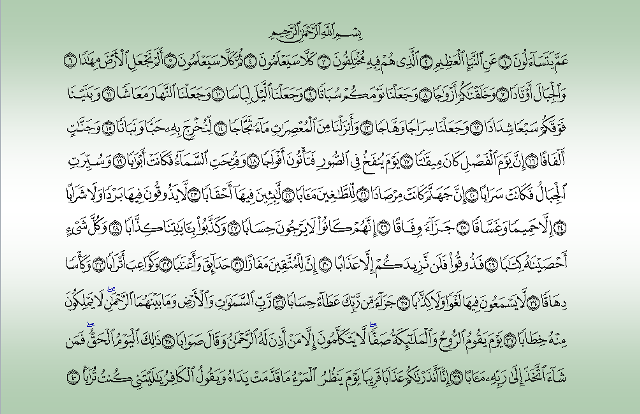 بِسْمِ اللَّهِ الرَّحْمَٰنِ الرَّحِيمِ
عَمَّ يَتَسَاءَلُونَ ١ عَنِ النَّبَإِ الْعَظِيمِ ٢ الَّذِي هُمْ فِيهِ مُخْتَلِفُونَ ٣ كَلَّا سَيَعْلَمُونَ ٤ ثُمَّ كَلَّا سَيَعْلَمُونَ ٥ أَلَمْ نَجْعَلِ الْأَرْضَ مِهَادًا ٦
وَالْجِبَالَ أَوْتَادًا ٧ وَخَلَقْنَاكُمْ أَزْوَاجًا ٨ وَجَعَلْنَا نَوْمَكُمْ سُبَاتًا ٩ وَجَعَلْنَا اللَّيْلَ لِبَاسًا ١٠ وَجَعَلْنَا النَّهَارَ مَعَاشًا ١١ وَبَنَيْنَا
فَوْقَكُمْ سَبْعًا شِدَادًا ١٢ وَجَعَلْنَا سِرَاجًا وَهَّاجًا ١٣ وَأَنْزَلْنَا مِنَ الْمُعْصِرَاتِ مَاءً ثَجَّاجًا ١٤ لِنُخْرِجَ بِهِ حَبًّا وَنَبَاتًا ١٥ وَجَنَّاتٍ
أَلْفَافًا ١٦ إِنَّ يَوْمَ الْفَصْلِ كَانَ مِيقَاتًا ١٧ يَوْمَ يُنْفَخُ فِي الصُّورِ فَتَأْتُونَ أَفْوَاجًا ١٨ وَفُتِحَتِ السَّمَاءُ فَكَانَتْ أَبْوَابًا ١٩ وَسُيِّرَتِ
الْجِبَالُ فَكَانَتْ سَرَابًا ٢٠ إِنَّ جَهَنَّمَ كَانَتْ مِرْصَادًا ٢١ لِلطَّاغِينَ مَآبًا ٢٢ لَابِثِينَ فِيهَا أَحْقَابًا ٢٣ لَا يَذُوقُونَ فِيهَا بَرْدًا وَلَا شَرَابًا
٢٤ إِلَّا حَمِيمًا وَغَسَّاقًا ٢٥ جَزَاءً وِفَاقًا ٢٦ إِنَّهُمْ كَانُوا لَا يَرْجُونَ حِسَابًا ٢٧ وَكَذَّبُوا بِآيَاتِنَا كِذَّابًا ٢٨ وَكُلَّ شَيْءٍ
أَحْصَيْنَاهُ كِتَابًا ٢٩ فَذُوقُوا فَلَنْ نَزِيدَكُمْ إِلَّا عَذَابًا ٣٠ إِنَّ لِلْمُتَّقِينَ مَفَازًا ٣١ حَدَائِقَ وَأَعْنَابًا ٣٢ وَكَوَاعِبَ أَتْرَابًا ٣٣ وَكَأْسًا
دِهَاقًا ٣٤ لَا يَسْمَعُونَ فِيهَا لَغْوًا وَلَا كِذَّابًا ٣٥ جَزَاءً مِنْ رَبِّكَ عَطَاءً حِسَابًا ٣٦ رَبِّ السَّمَاوَاتِ وَالْأَرْضِ وَمَا بَيْنَهُمَا الرَّحْمَٰنِ ۖ لَا يَمْلِكُونَ
مِنْهُ خِطَابًا ٣٧ يَوْمَ يَقُومُ الرُّوحُ وَالْمَلَائِكَةُ صَفًّا ۖ لَا يَتَكَلَّمُونَ إِلَّا مَنْ أَذِنَ لَهُ الرَّحْمَٰنُ وَقَالَ صَوَابًا ٣٨ ذَٰلِكَ الْيَوْمُ الْحَقُّ ۖ فَمَنْ
شَاءَ اتَّخَذَ إِلَىٰ رَبِّهِ مَآبًا ٣٩ إِنَّا أَنْذَرْنَاكُمْ عَذَابًا قَرِيبًا يَوْمَ يَنْظُرُ الْمَرْءُ مَا قَدَّمَتْ يَدَاهُ وَيَقُولُ الْكَافِرُ يَا لَيْتَنِي كُنْتُ تُرَابًا ٤٠